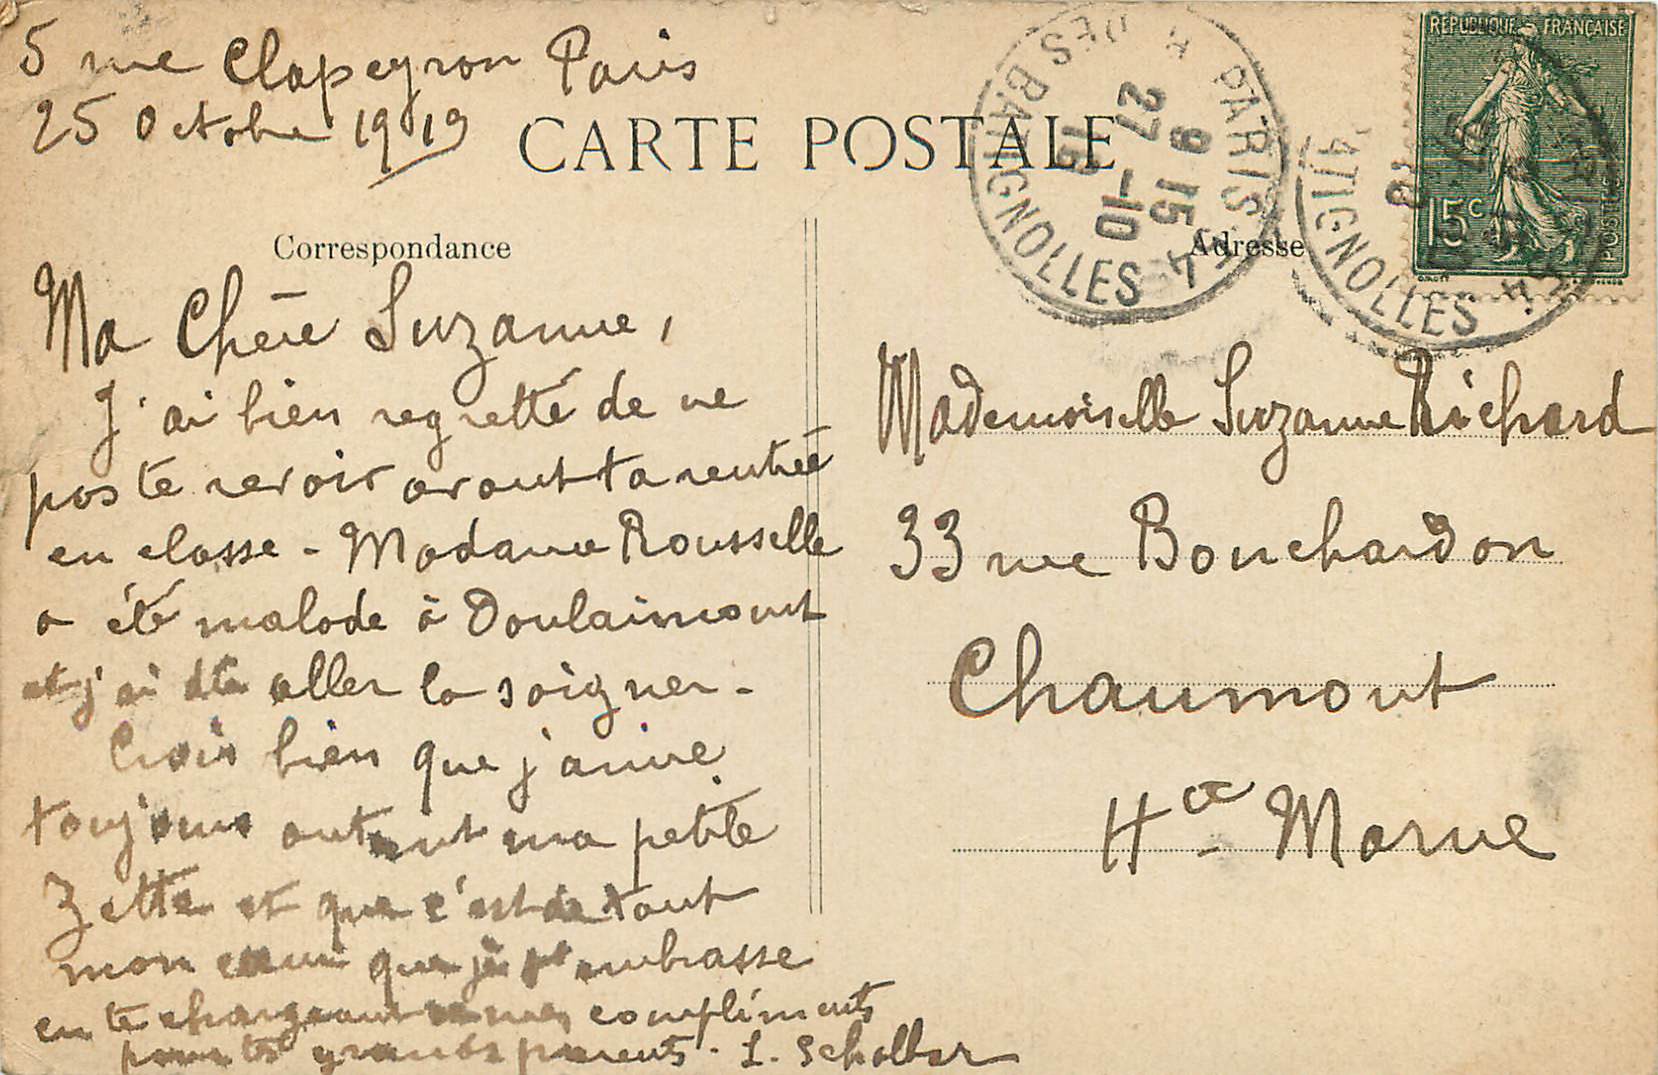 5 rue Clapeyron Paris
25 Octobre 1919
CARTE POSTALE
Correspondance
Ma Chère Suzanne,
J'ai bien regretté de ne
pas te revoir avant ta rentrée
en classe - Madame Rousselle
a été malade à Doulaincourt
et j'ai dû aller la soigner -
Crois bien que j'aime
toujours autant ma petite
Zette et que c'est de tout
mon cœur que je t'embrasse
en te chargeant de mes compliments
pour tes grands parents. L.
Adresse
Mademoiselle Suzanne Richard
33 rue Bouchardon
Chaumont
Hte - Marne
PARIS 47
R. DES BATIGNOLLES
9 15
27 -10
19
REPUBLIQUE FRANÇAISE
15c
POSTES
ATIGNOLLES